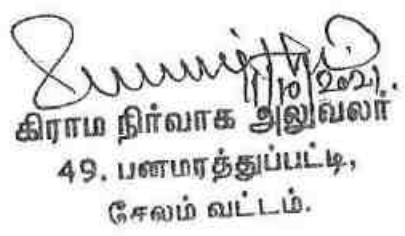 1/10/2021.
கிராம நிர்வாக அலுவலர்
49. பனமரத்துப்பட்டி,
சேலம் வட்டம்.